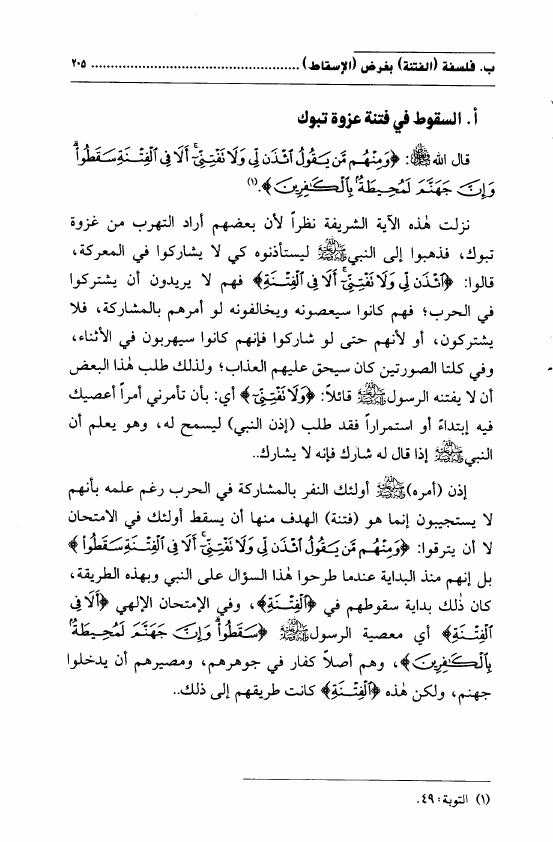 ب. فلسفة (الفتنة) بغرض (الإسقاط) ........................................................ ٢٠٥
أ. السقوط في فتنة عزوة تبوك
قال الله ﷻ: ﴿وَمِنْهُم مَّن يَقُولُ ائْذَن لِّي وَلَا تَفْتِنِّي ۚ أَلَا فِي الْفِتْنَةِ سَقَطُوا ۗ
وَإِنَّ جَهَنَّمَ لَمُحِيطَةٌ بِالْكَافِرِينَ﴾.(١)
نزلت هٰذه الآية الشريفة نظراً لأن بعضهم أراد التهرب من غزوة
تبوك، فذهبوا إلى النبي ﷺ ليستأذنوه كي لا يشاركوا في المعركة،
قالوا: ﴿ائْذَن لِّي وَلَا تَفْتِنِّي ۚ أَلَا فِي الْفِتْنَةِ﴾ فهم لا يريدون أن يشتركوا
في الحرب؛ فهم كانوا سيعصونه ويخالفونه لو أمرهم بالمشاركة، فلا
يشتركون، أو لأنهم حتى لو شاركوا فإنهم كانوا سيهربون في الأثناء،
وفي كلتا الصورتين كان سيحق عليهم العذاب؛ ولذلك طلب هٰذا البعض
أن لا يفتنه الرسول ﷺ قائلاً: ﴿وَلَا تَفْتِنِّي﴾ أي: بأن تأمرني أمراً أعصيك
فيه إبتداءً أو استمراراً فقد طلب (إذن النبي) ليسمح له، وهو يعلم أن
النبي ﷺ إذا قال له شارك فإنه لا يشارك..
إذن (أمره) ﷺ أولئك النفر بالمشاركة في الحرب رغم علمه بأنهم
لا يستجيبون إنما هو (فتنة) الهدف منها أن يسقط أولئك في الامتحان
لا أن يترقوا: ﴿وَمِنْهُم مَّن يَقُولُ ائْذَن لِّي وَلَا تَفْتِنِّي ۚ أَلَا فِي الْفِتْنَةِ سَقَطُوا﴾
بل إنهم منذ البداية عندما طرحوا هٰذا السؤال على النبي وبهذه الطريقة،
كان ذٰلك بداية سقوطهم في ﴿الْفِتْنَةِ﴾، وفي الإمتحان الإلهي ﴿أَلَا فِي
الْفِتْنَةِ﴾ أي معصية الرسول ﷺ ﴿سَقَطُوا ۗ وَإِنَّ جَهَنَّمَ لَمُحِيطَةٌ
بِالْكَافِرِينَ﴾، وهم أصلاً كفار في جوهرهم، ومصيرهم أن يدخلوا
جهنم، ولكن هٰذه ﴿الْفِتْنَةِ﴾ كانت طريقهم إلى ذلك..
(١) التوبة: ٤٩.